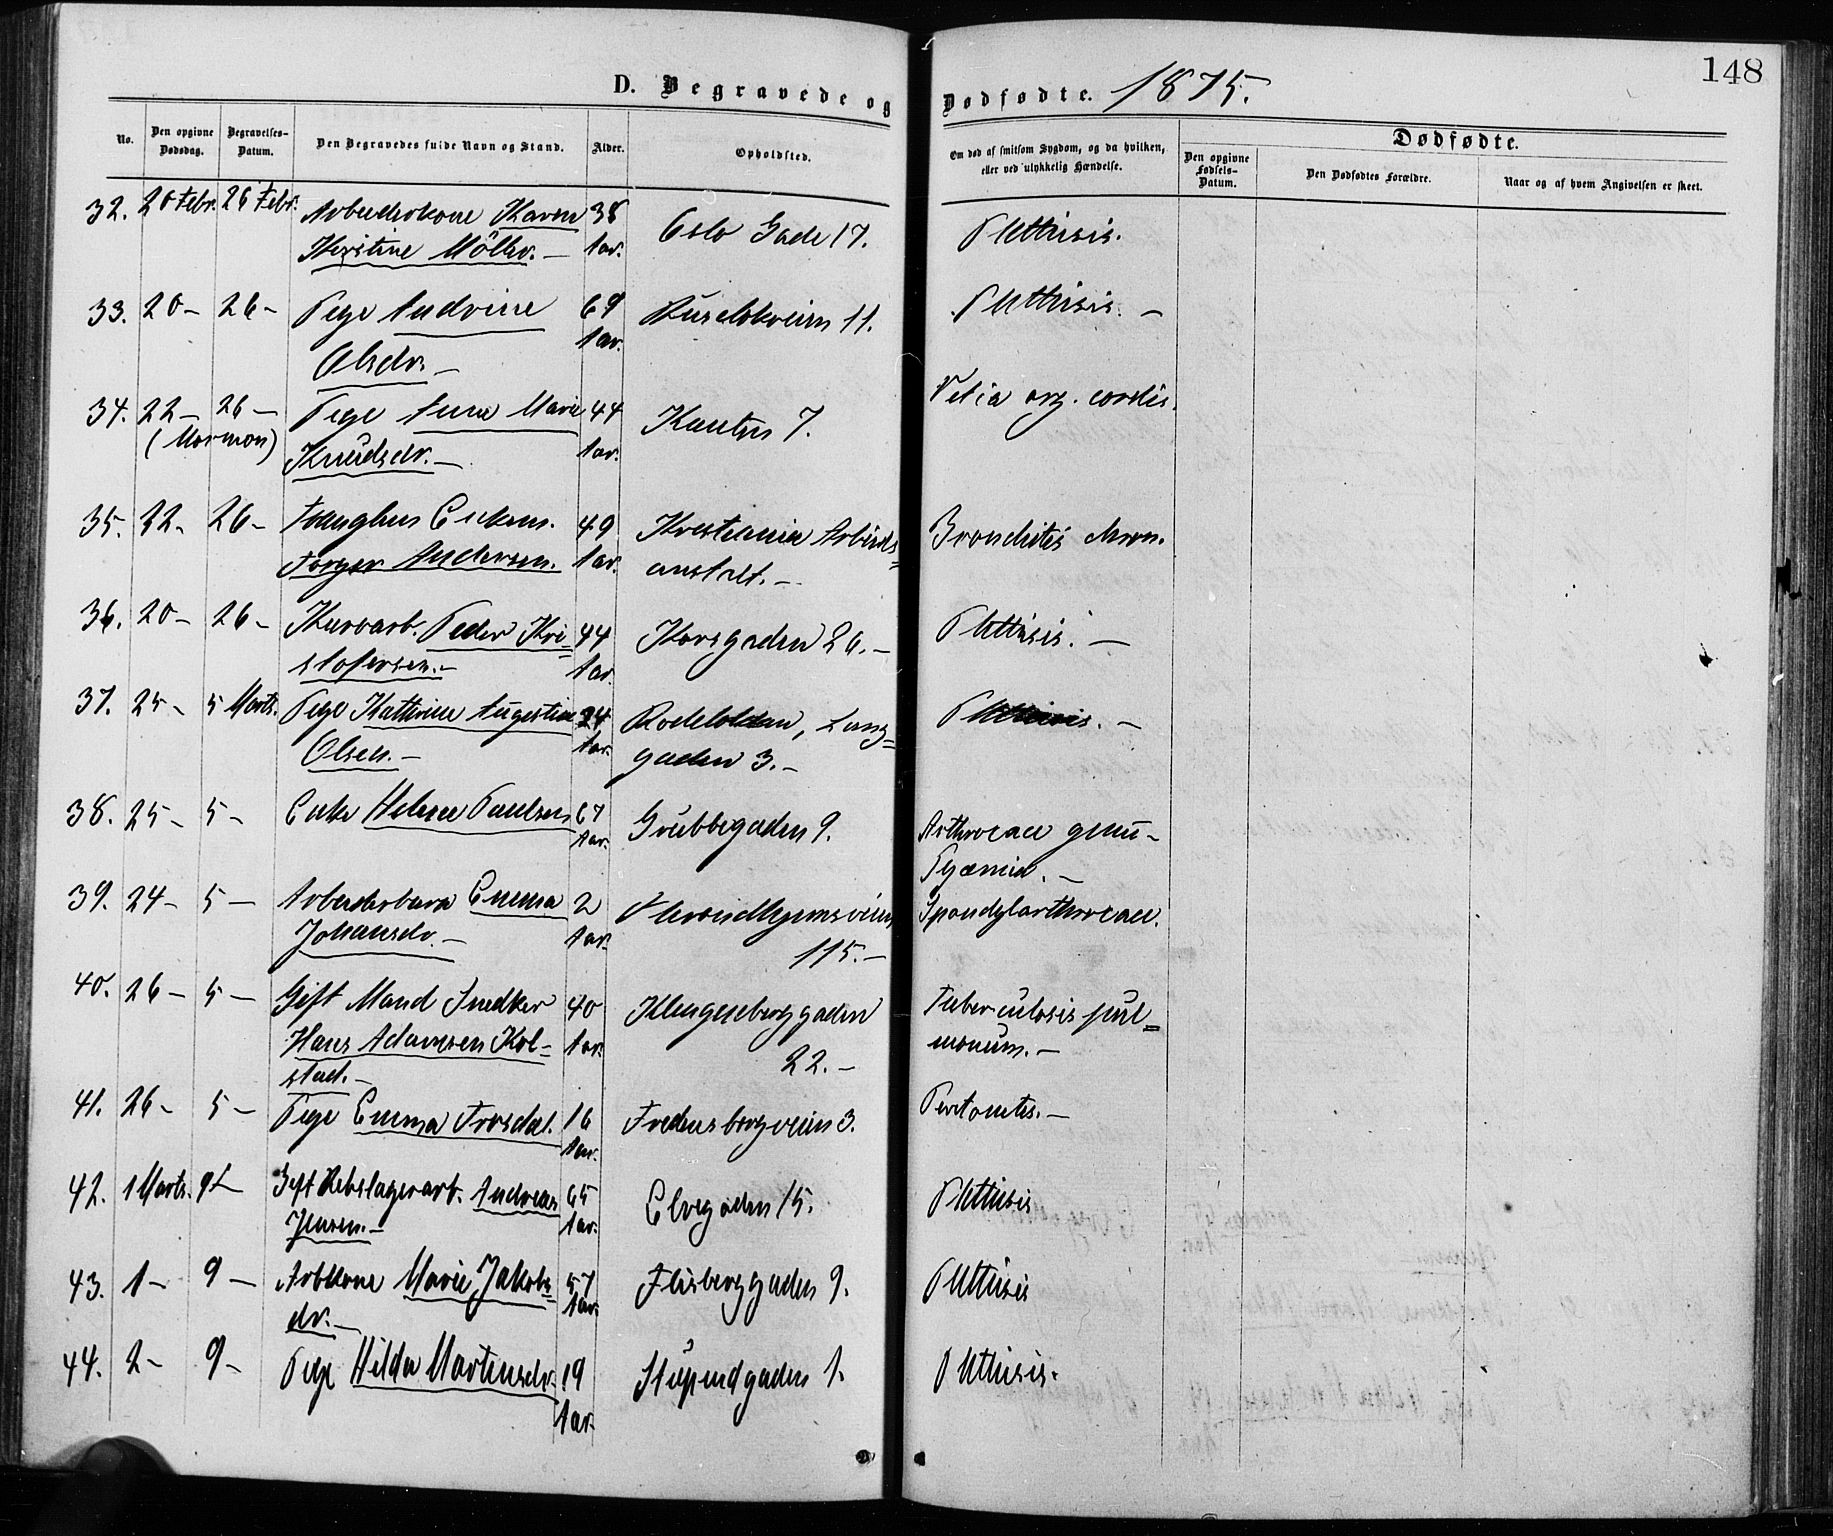 148
D. Begravede og Dødfødte. 1875.
No.
Den opgivne Dødsdag.
Begravelses-Datum.
Den Begravedes fulde Navn og Stand.
Alder.
Opholdsted.
Om død af smitsom Sygdom, og da hvilken, eller ved ulykkelig Hændelse.
Dødfødte.
Den opgivne Fødsels-Datum.
Den Dødfødtes Forældre.
Naar og af hvem Angivelsen er skeet.
32. 20 Febr. 26 Febr. Arbeiderkone Karen 38 Oslo Gade 17. Phthisis.
Kirstine Möller. — Aar.
33. 20 – 26 – Pige Andrine 69 Ruseløkveien 11. Phthisis. —
Olsdr. — Aar.
34. 22 – 26 – Pige Anna Marie 44 Kanten 7. Vitia org. cordis.
(Mormon) Knudsdr. — Aar.
35. 22 – 26 – Enkem. 49 Kristiania Arbeids= Bronchitis chron.
Torger Andersen. Aar. anstalt. —
36. 20 – 26 – Peder Kri= 44 Korsgaden 26. — Phthisis. —
stofersen. — Aar.
37. 25 – 5 Marts. Pige Kathrine Augustine 24 Rodeløkken, Lang= Phthisis. —
Olsen. — Aar. gaden 3. —
38. 25 – 5 – Enke Helene Paulsen 67 Grubbegaden 9. Arthrocace genu –
Aar. Pyæmia. —
39. 24 – 5 – Arbeiderbarn Emma 2 Throndhjemsveien Spondylarthrocace.
Johansdr. — Aar. 115. —
40. 26 – 5 – Gift Mand Snedker 40 Klingenberggaden Tuberculosis pul=
Hans Adamsen Kol= Aar. 22. — monum. —
stad. —
41. 26 – 5 – Pige Emma Frosdal. 16 Fredensborgveien 3. Peritonitis. —
Aar.
42. 1 Marts. 9 – Gift Rebslagerarb. Andreas 65 Elvegaden 15. Phthisis
Jensen. — Aar.
43. 1 – 9 – Arbkone Marie Jakobs= 57 Flisberggaden 9. Phthisis
dr. — Aar.
44. 2 – 9 – Pige Hilda Martinsdr. 19 Stupendgaden 1. Phthisis.
Aar.